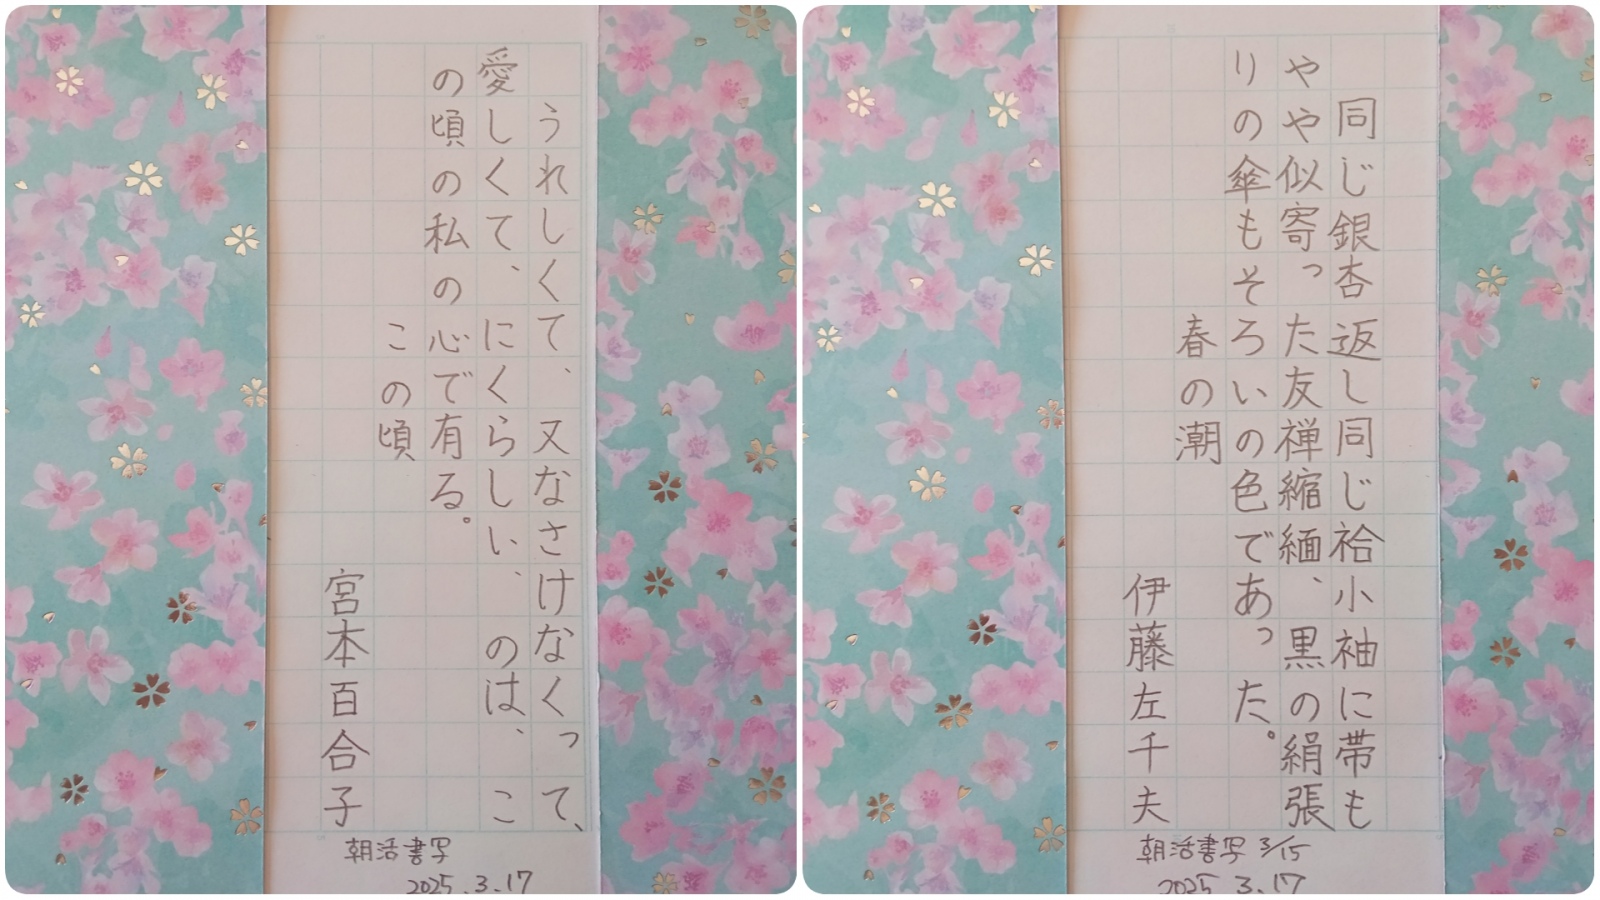 うれしくて、又なさけなくって、
愛しくて、にくらしい、のは、こ
の頃の私の心で有る。
この頃
宮本百合子
朝活書写
2025.3.17
同じ銀杏返し同じ袷小袖に帯も
やや似寄った友禅縮緬、黒の絹張
りの傘もそろいの色であった。
春の潮
伊藤左千夫
朝活書写 3/15
2025 3.17